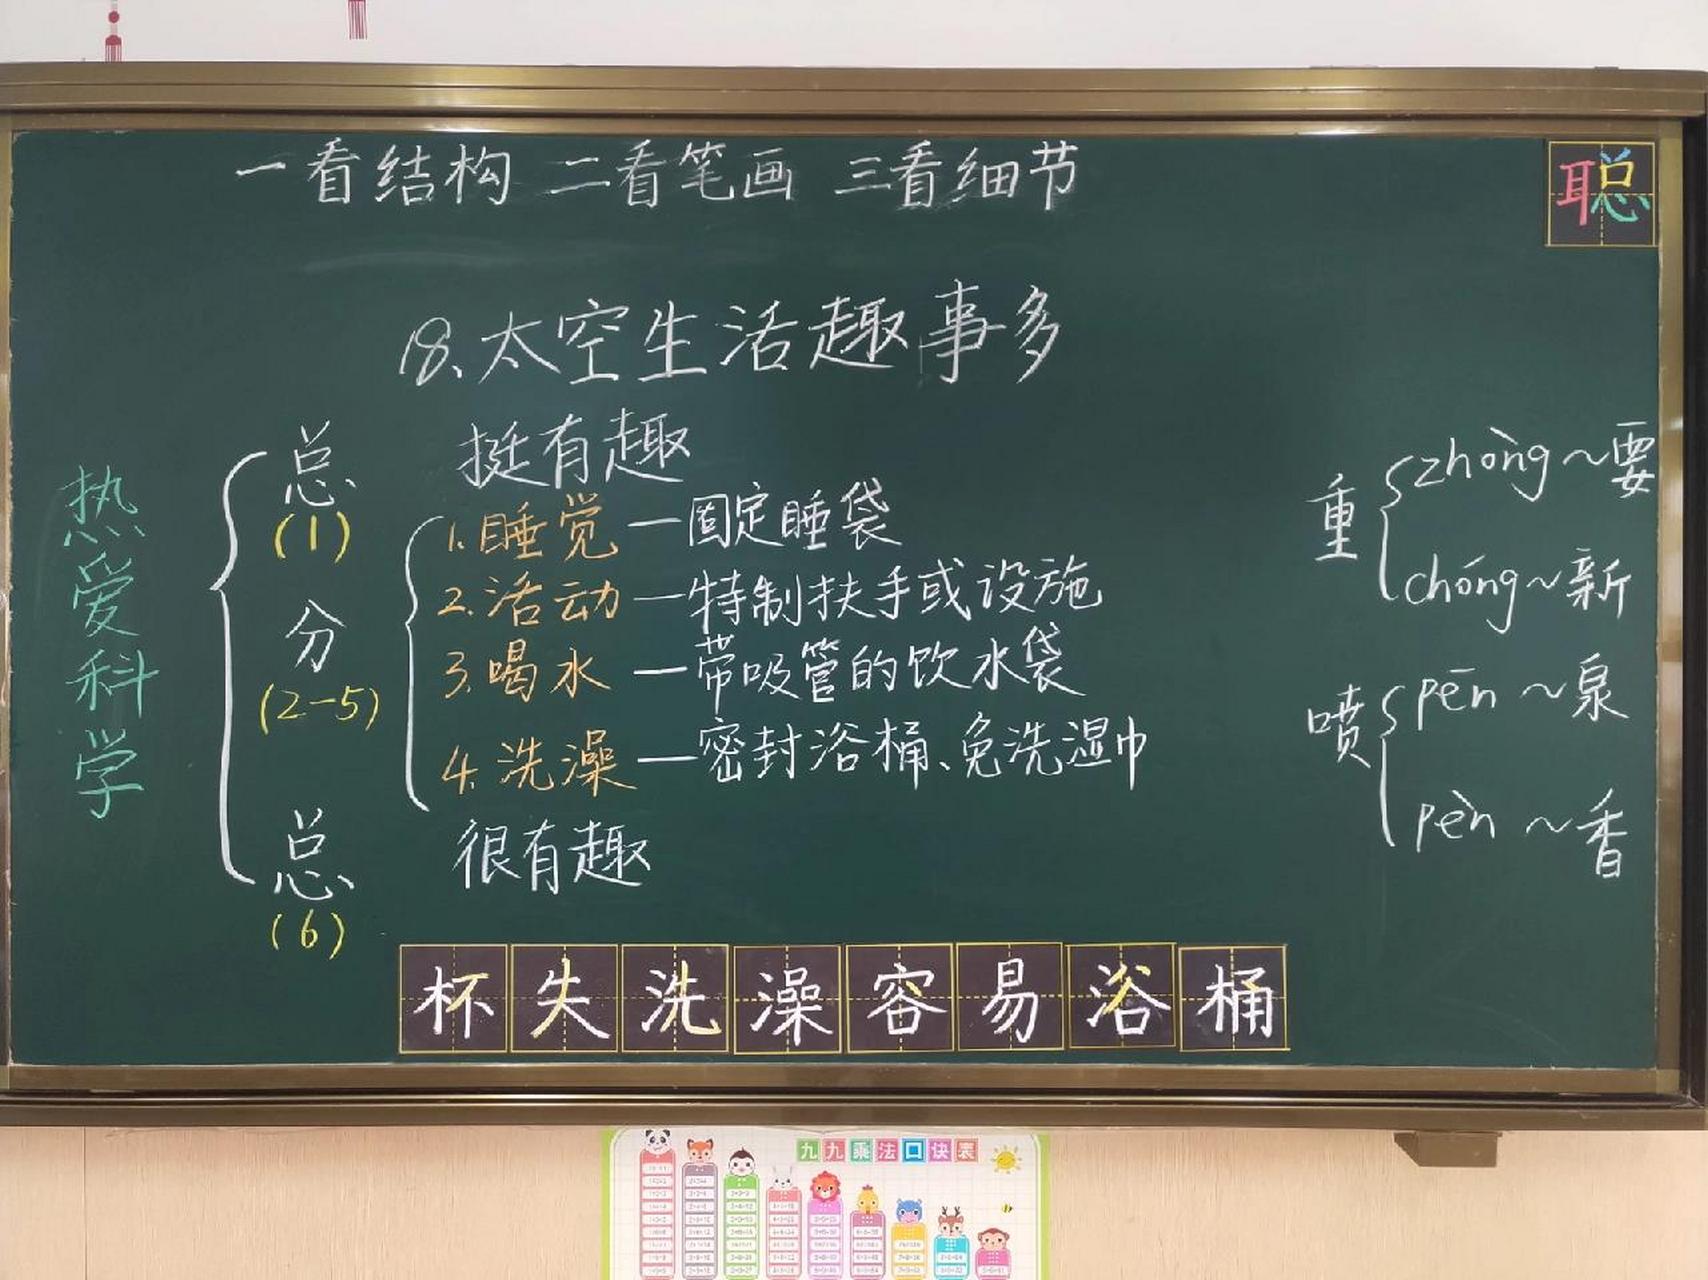 一看结构 二看笔画 三看细节
聪
18.太空生活趣事多
热爱科学
总
(1)
分
(2-5)
总
(6)
挺有趣
1.睡觉—固定睡袋
2.活动—特制扶手或设施
3.喝水—带吸管的饮水袋
4.洗澡—密封浴桶、免洗湿巾
很有趣
重
zhòng~要
chóng~新
喷
pēn~泉
pèn~香
杯失洗澡容易浴桶
九九乘法口诀表